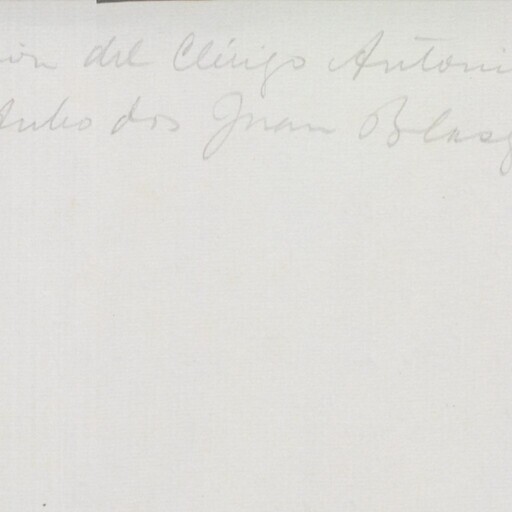 ion del Clérigo Antoni
dos Juan Blasq